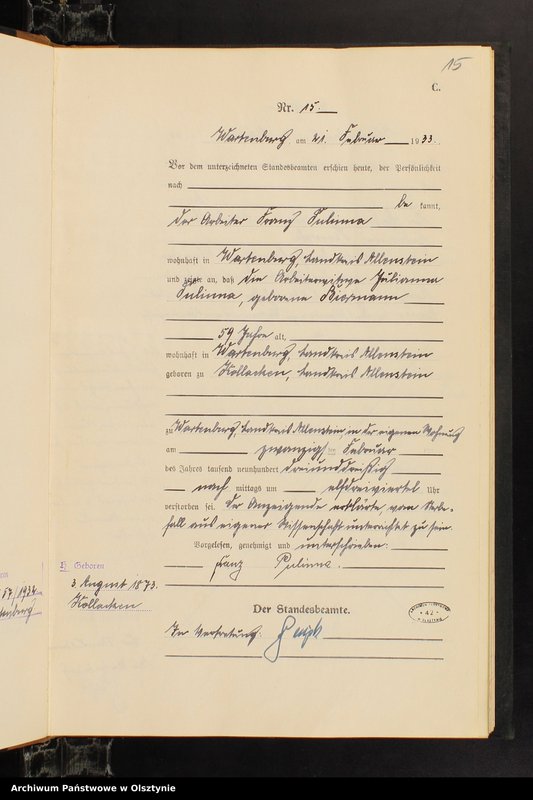 15
C.
Nr. 15.
Wartenburg, am 21. Februar 1933.
Vor dem unterzeichneten Standesbeamten erschien heute, der Persönlichkeit
nach
be kannt,
der Arbeiter Franz Pulinna
wohnhaft in Wartenburg, Landkreis Allenstein
und zeigte an, daß die Arbeiterwitwe Julianna
Pulinna, geborene Biermann
59 Jahre alt,
wohnhaft in Wartenburg, Landkreis Allenstein
geboren zu Kollacken, Landkreis Allenstein
zu Wartenburg, Landkreis Allenstein, in der eigenen Wohnung
am zwanzigsten Februar
des Jahres tausend neunhundert dreiunddreißig
nach mittags um elfdreiviertel Uhr
verstorben sei. Der Anzeigende erklärte, vom Sterbe-
fall aus eigener Wissenschaft unterrichtet zu sein.
Vorgelesen, genehmigt und unterschrieben.
Franz Pulinna.
Der Standesbeamte.
In Vertretung:
Geboren
3. August 1873.
Kollacken
57/1934
42
Archiwum Państwowe w Olsztynie